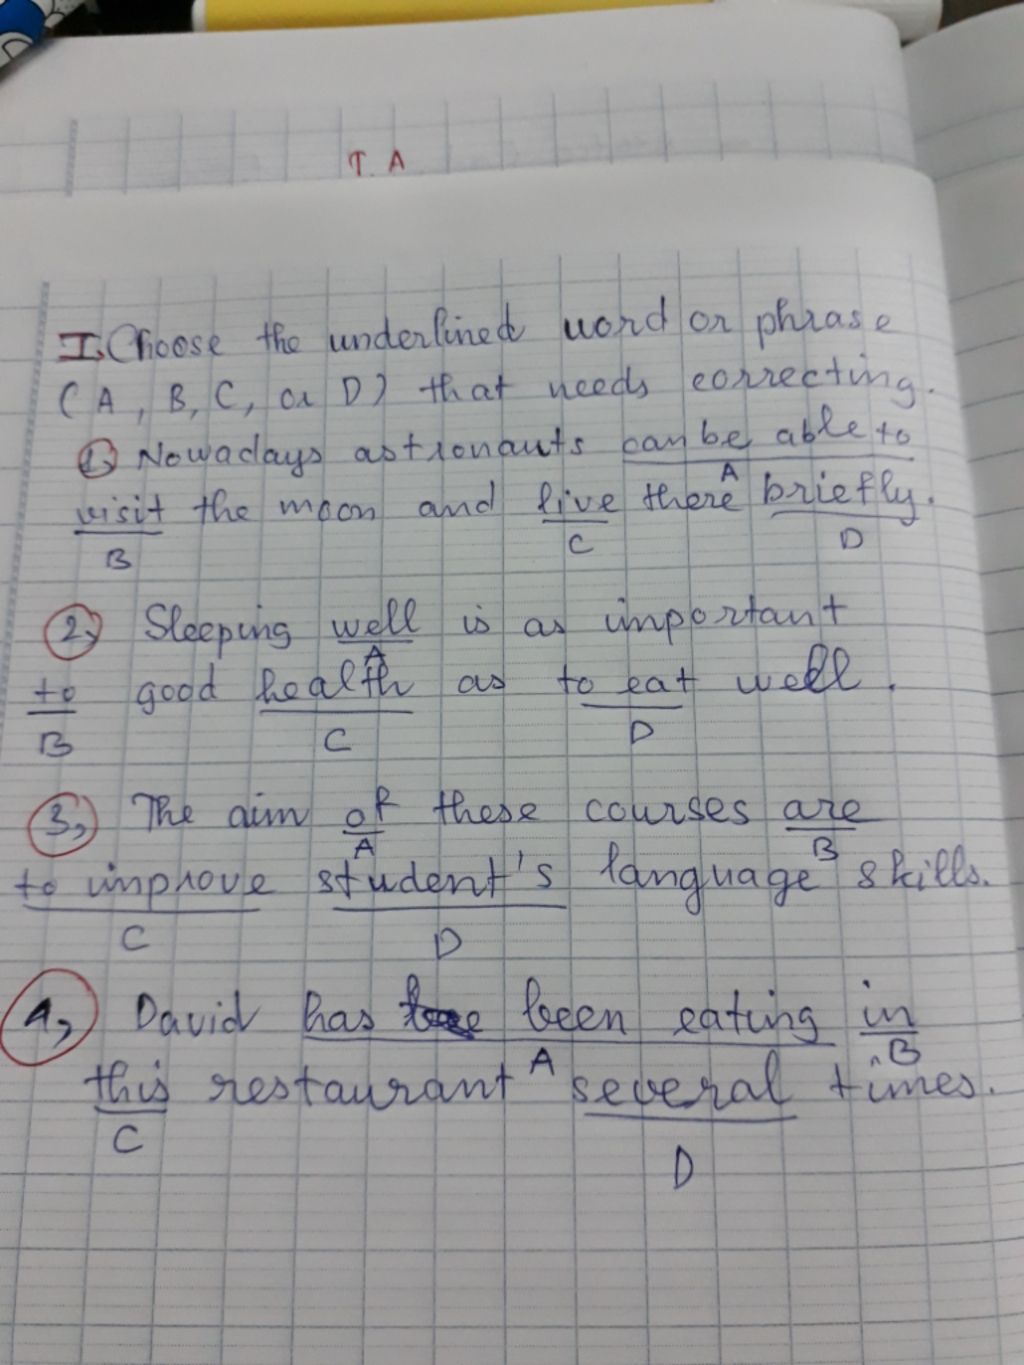 T. A
I, Choose the underlined word or phrase
(A, B, C, or D) that needs correcting.
1, Nowadays astronauts can be able to
A
visit the moon and live there briefly.
B C D
2, Sleeping well is as important
A
to good health as to eat well.
B C D
3, The aim of these courses are
A B
to improve student's language skills.
C D
4, David has been eating in
A B
this restaurant several times.
C D